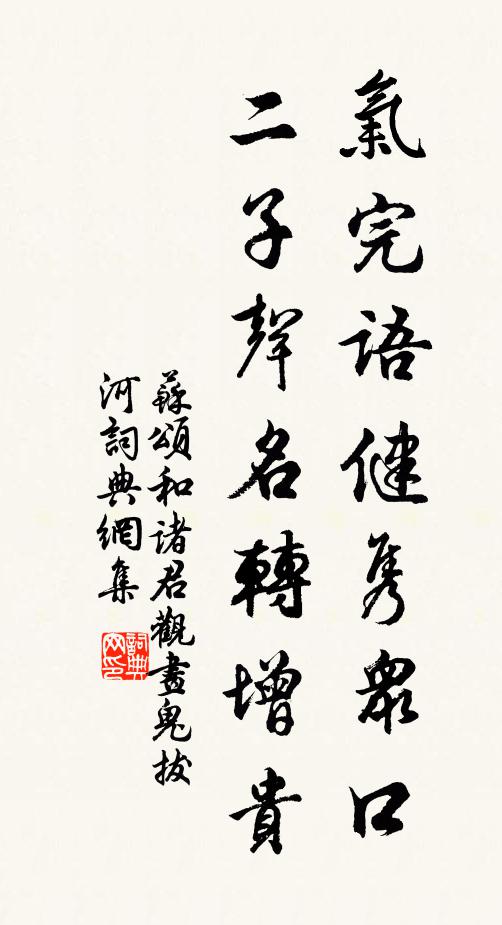 氣完語健隽衆口
二子聲名轉增貴
蘇頌和諸君觀畫鬼拔
河詞典網集
詞典
网印